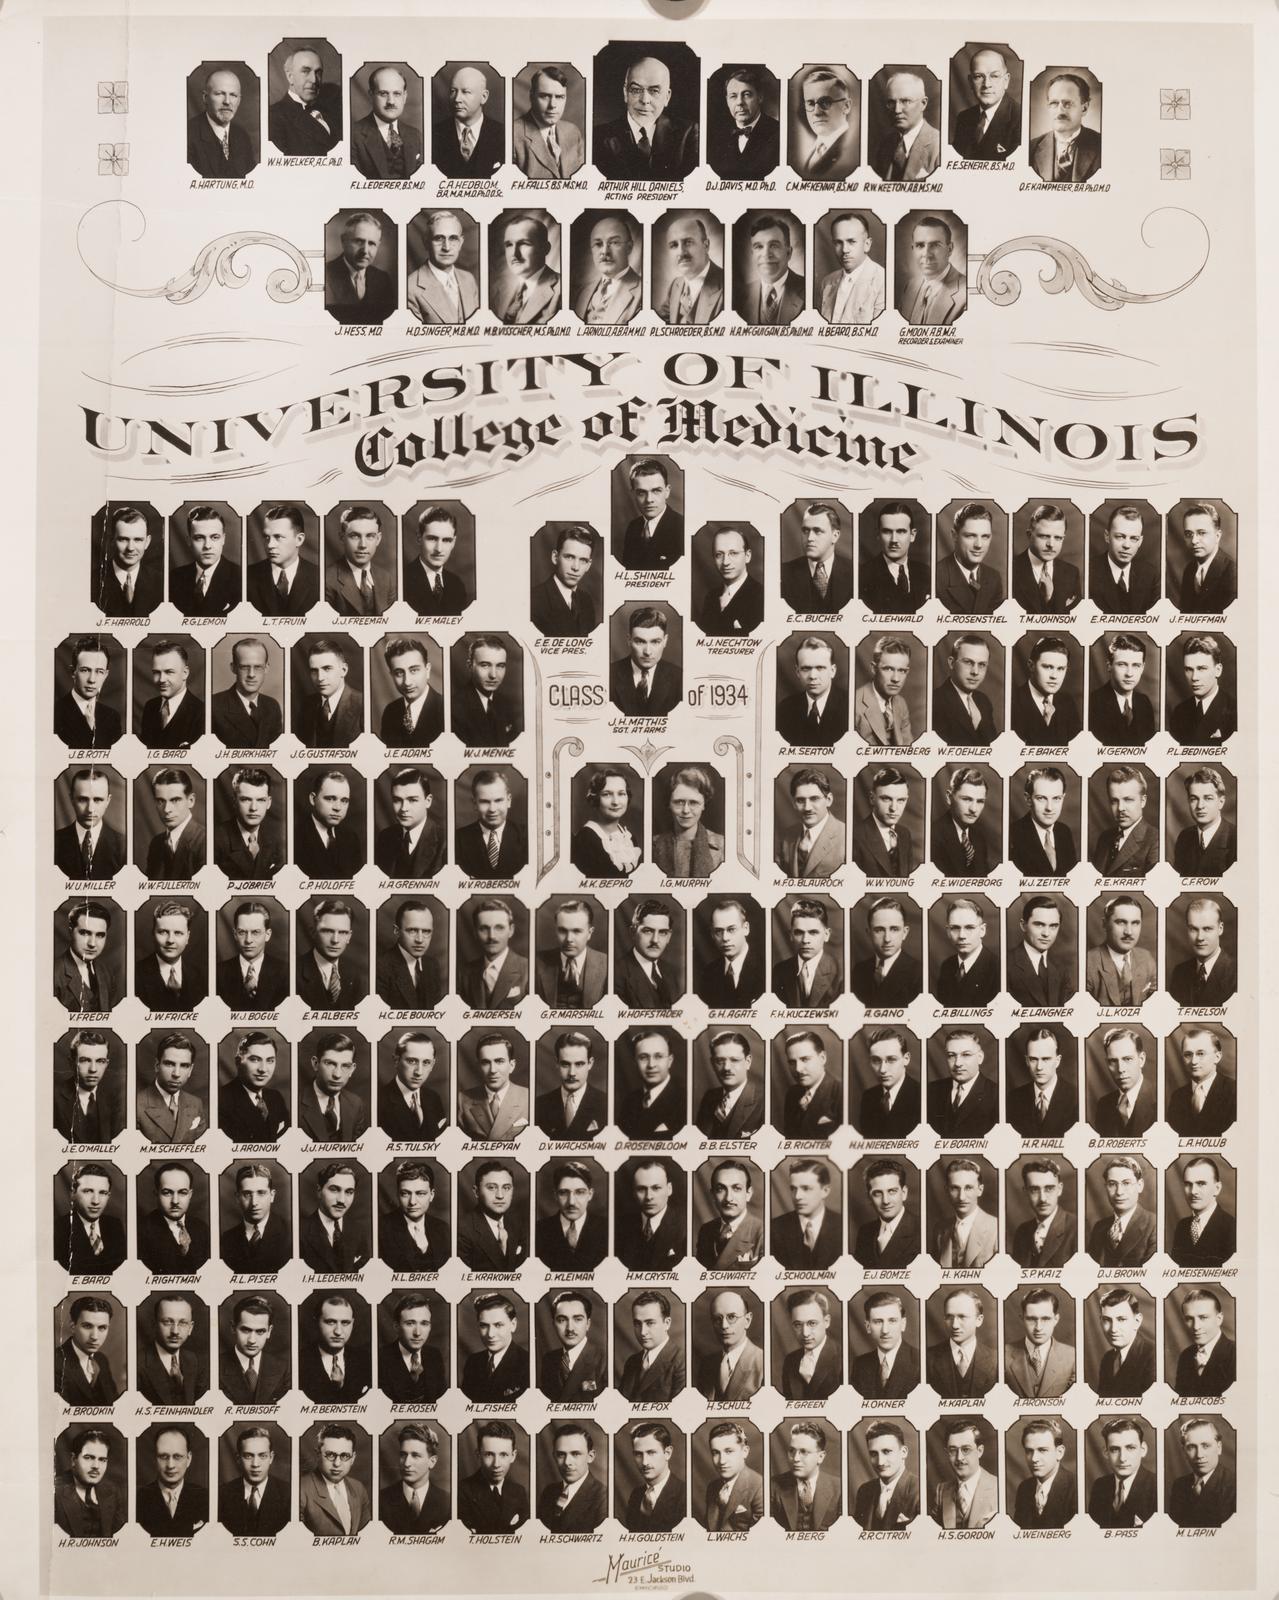 A. HARTUNG, M.D.
W.H. WELKER, A.C. Ph.D.
F.L. LEDERER, B.S. M.D.
C.A. HEDBLOM,
B.A. M.A. M.D. Ph.D. D.Sc.
F.H. FALLS, B.S. M.S. M.D.
ARTHUR HILL DANIELS,
ACTING PRESIDENT
D.J. DAVIS, M.D. Ph.D.
C.M. McKENNA, B.S. M.D.
R.W. KEETON, A.B. M.S. M.D.
F.E. SENEAR, B.S. M.D.
O.F. KAMPMEIER, B.A. Ph.D. M.D.
J. HESS, M.D.
H.D. SINGER, M.B. M.D.
M.B. VISSCHER, M.S. Ph.D. M.D.
L. ARNOLD, A.B. A.M. M.D.
P.L. SCHROEDER, B.S. M.D.
H.A. McGUIGAN, B.S. Ph.D. M.D.
H. BEARD, B.S. M.D.
G. MOON, A.B. M.A.
RECORDER & EXAMINER
UNIVERSITY OF ILLINOIS
College of Medicine
H.L. SHINALL
PRESIDENT
J.F. HARROLD
R.G. LEMON
L.T. FRUIN
J.J. FREEMAN
W.F. MALEY
E.E. DE LONG
VICE PRES.
M.J. NECHTOW
TREASURER
E.C. BUCHER
C.J. LEHWALD
H.C. ROSENSTIEL
T.M. JOHNSON
E.R. ANDERSON
J.F. HUFFMAN
CLASS of 1934
J.H. MATHIS
SGT. AT ARMS
J.B. ROTH
I.G. BARD
J.H. BURKHART
J.G. GUSTAFSON
J.E. ADAMS
W.J. MENKE
R.M. SEATON
C.E. WITTENBERG
W.F. OEHLER
E.F. BAKER
W. GERNON
P.L. BEDINGER
W.U. MILLER
W.W. FULLERTON
P.J. O'BRIEN
C.P. HOLOFFE
H.A. GRENNAN
W.V. ROBERSON
M.K. BEPKO
I.G. MURPHY
M.F.O. BLAUROCK
W.W. YOUNG
R.E. WIDERBORG
W.J. ZEITER
R.E. KRART
C.F. ROW
V. FREDA
J.W. FRICKE
W.J. BOGUE
E.A. ALBERS
H.C. DE BOURCY
G. ANDERSEN
G.R. MARSHALL
W. HOFFSTADER
G.H. AGATE
F.H. KUCZEWSKI
A. GANO
C.A. BILLINGS
M.E. LANGNER
J.L. KOZA
T.F. NELSON
J.E. O'MALLEY
M.M. SCHEFFLER
J. ARONOW
J.J. HURWICH
A.S. TULSKY
A.H. SLEPYAN
D.V. WACHSMAN
D. ROSENBLOOM
B.B. ELSTER
I.B. RICHTER
H.H. NIERENBERG
E.V. BOARINI
H.R. HALL
B.D. ROBERTS
L.A. HOLUB
E. BARD
I. RIGHTMAN
A.L. PISER
I.H. LEDERMAN
N.L. BAKER
I.E. KRAKOWER
D. KLEIMAN
H.M. CRYSTAL
B. SCHWARTZ
J. SCHOOLMAN
E.J. BOMZE
H. KAHN
S.P. KAIZ
D.J. BROWN
H.O. MEISENHEIMER
M. BRODKIN
H.S. FEINHANDLER
R. RUBISOFF
M.R. BERNSTEIN
R.E. ROSEN
M.L. FISHER
R.E. MARTIN
M.E. FOX
H. SCHULZ
F. GREEN
H. OKNER
M. KAPLAN
A. ARONSON
M.J. COHN
M.B. JACOBS
H.R. JOHNSON
E.H. WEIS
S.S. COHN
B. KAPLAN
R.M. SHAGAM
T. HOLSTEIN
H.R. SCHWARTZ
H.H. GOLDSTEIN
L. WACHS
M. BERG
R.R. CITRON
H.S. GORDON
J. WEINBERG
B. PASS
M. LAPIN
Maurice STUDIO
23 E. Jackson Blvd.
CHICAGO